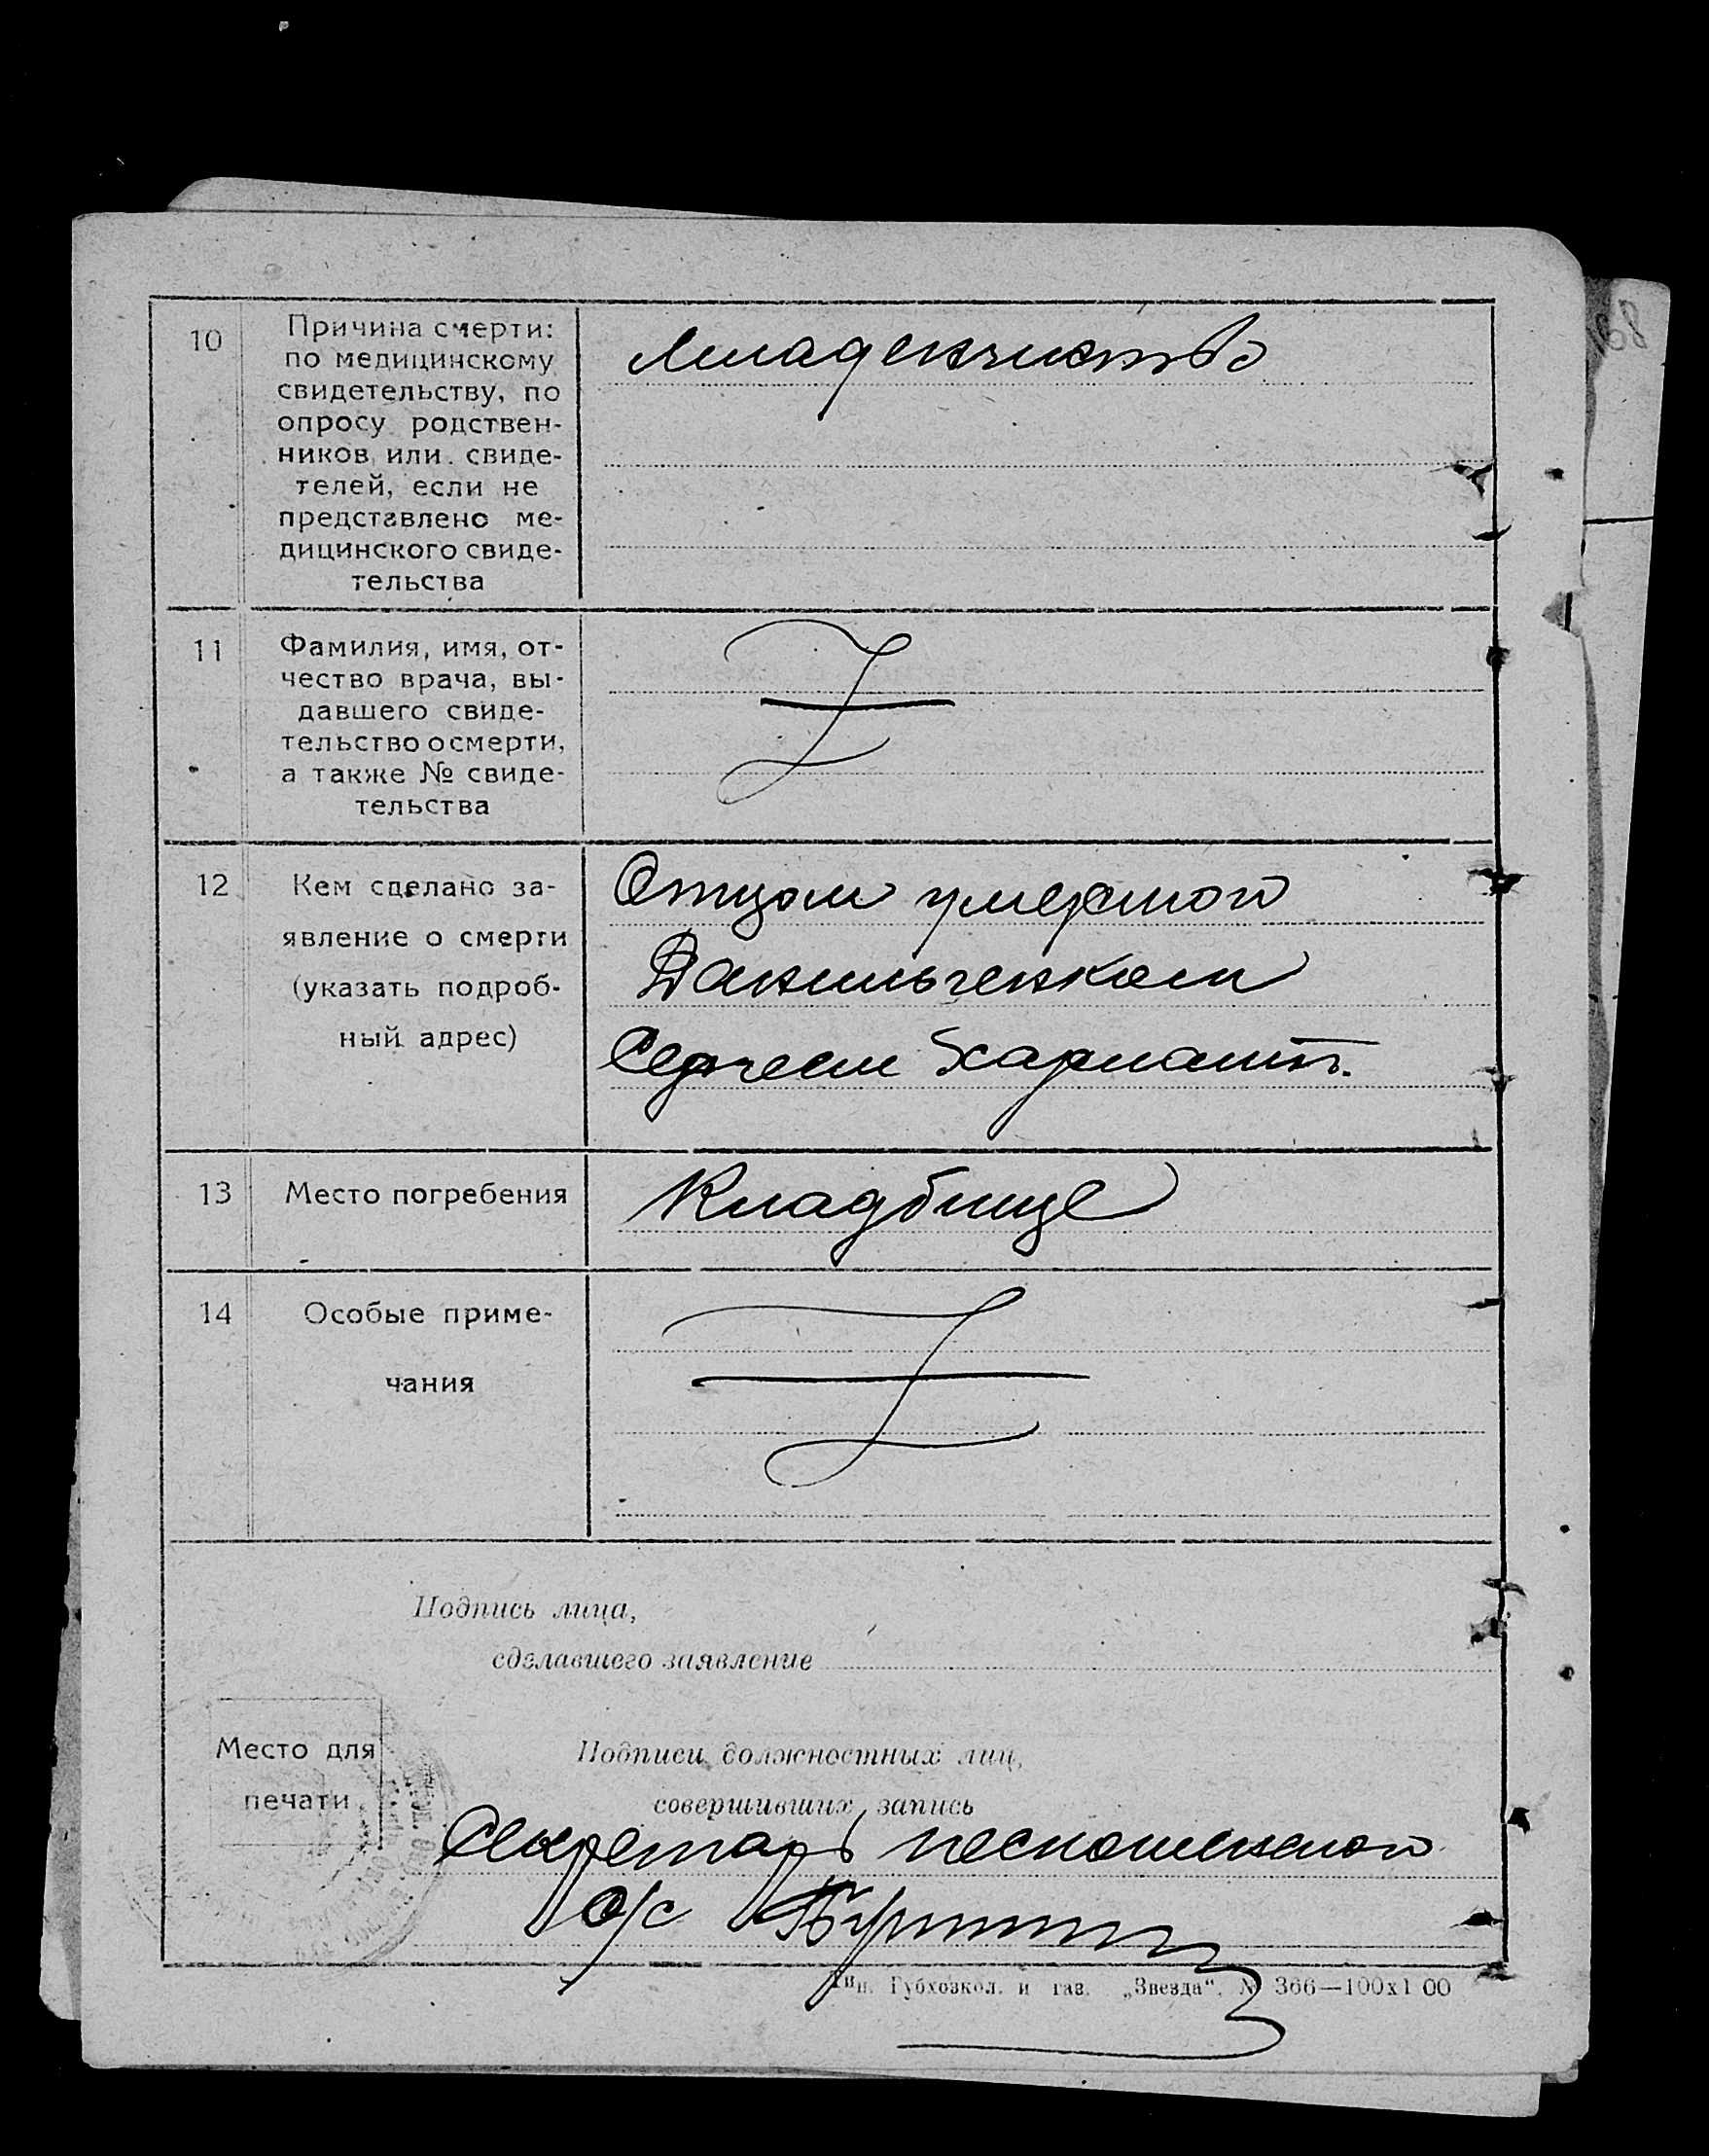 10
Причина смерти:
по медицинскому
свидетельству, по
опросу родствен-
ников или свиде-
телей, если не
представлено ме-
дицинского свиде-
тельства
Младенчество
11
Фамилия, имя, от-
чество врача, вы-
давшего свиде-
тельство о смерти,
а также № свиде-
тельства
12
Кем сделано за-
явление о смерти
(указать подроб-
ный адрес)
Отцом умершой
Данильченком
Сергеем Харлампь.
13
Место погребения
Кладбище
14
Особые приме-
чания
Подпись лица,
сделавшего заявление
Место для
печати
Подписи должностных лиц,
совершивших запись
Секретарь
с/с
Тип. Губхозкол. и газ. „Звезда“. № 366—100х1 00